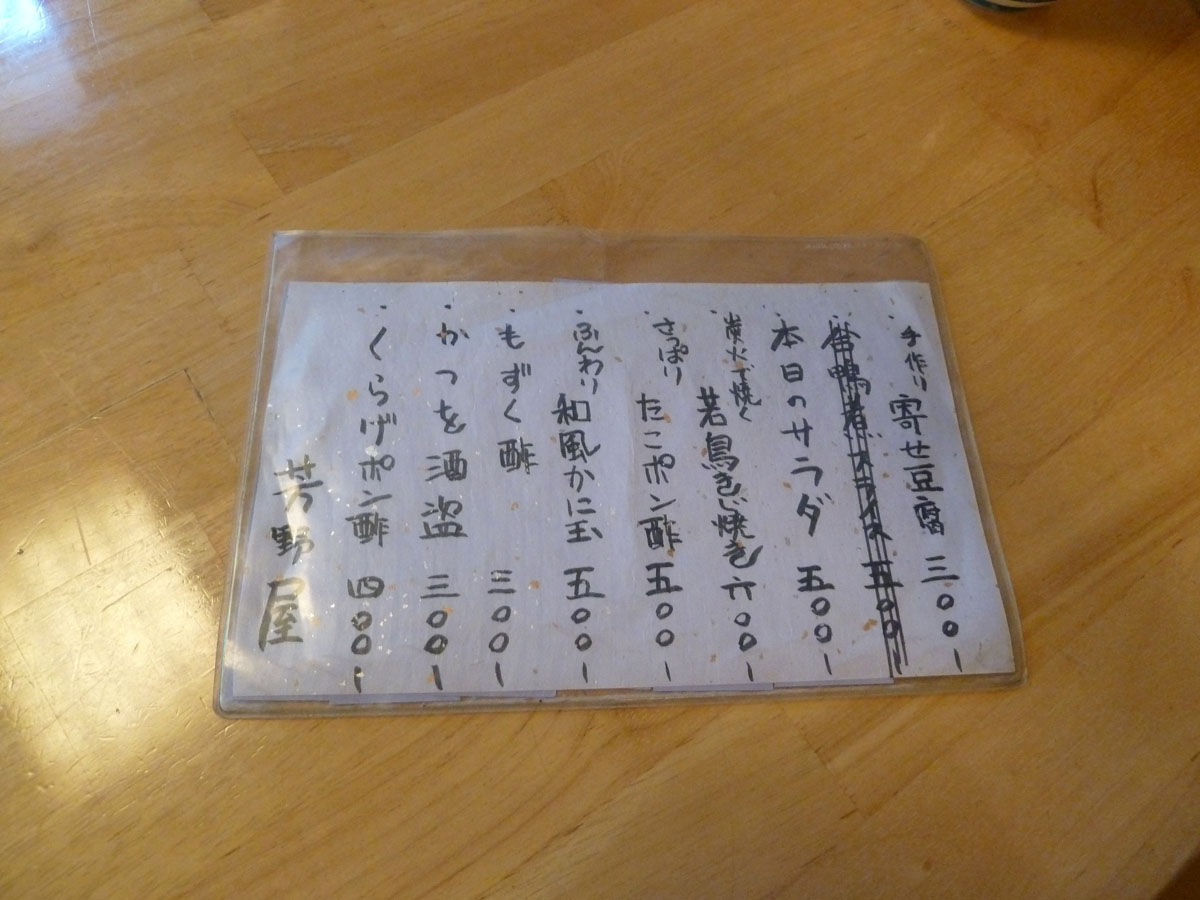 ・手作り 寄せ豆腐 三〇〇ー
・合鴨 五〇〇ー
・本日のサラダ 五〇〇ー
・炭火で焼く 若鳥きじ焼き 六〇〇ー
・さっぱり たこポン酢 五〇〇ー
・ふんわり 和風かに玉 五〇〇ー
・もずく酢 三〇〇ー
・かつを酒盗 三〇〇ー
・くらげポン酢 四〇〇ー
芳野屋